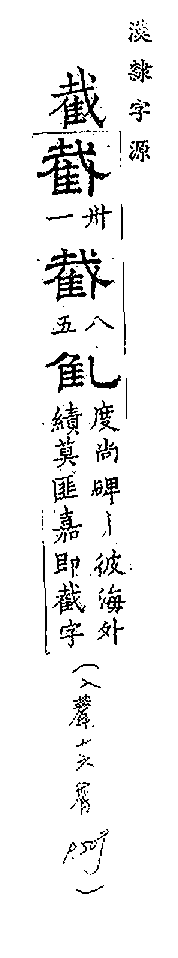 漢隸字源
截
截
卅一
截
八五
度尚碑丨彼海外
績莫匪嘉即截字
(入聲十六屑
)